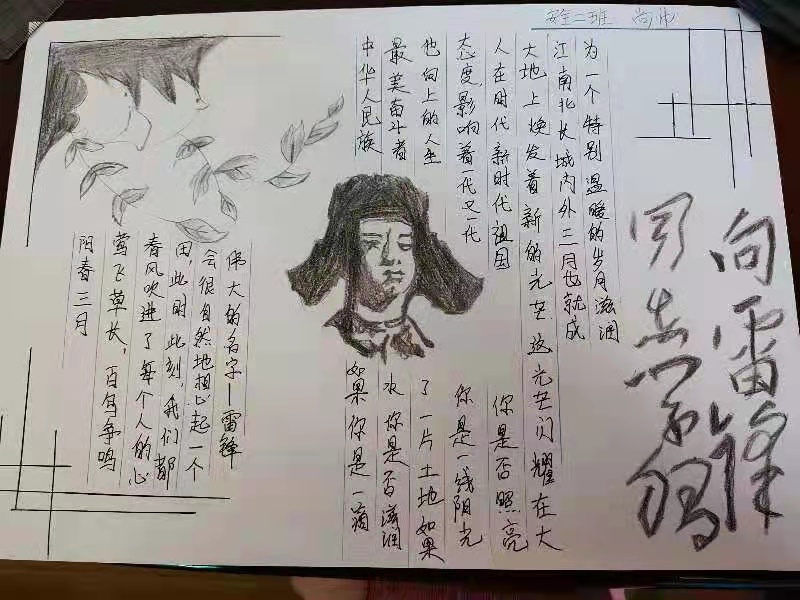 安全二班
向雷锋
同志学习
阳春三月
莺飞草长，百鸟争鸣
春风吹进了每个人的心
田，此时此刻，我们都
会很自然地想起一个
伟大的名字—雷锋
如果你是一滴
水 你是否滋润
了一片土地如果
你是一线阳光
你是否照亮
中华人民族
最美奋斗者
他向上的人生
态度,影响着一代又一代
人在时代新时代祖国
大地上焕发着新的光芒这光芒闪耀在大
江南北长城内外三月也就成
为一个特别温暖的岁月滋润